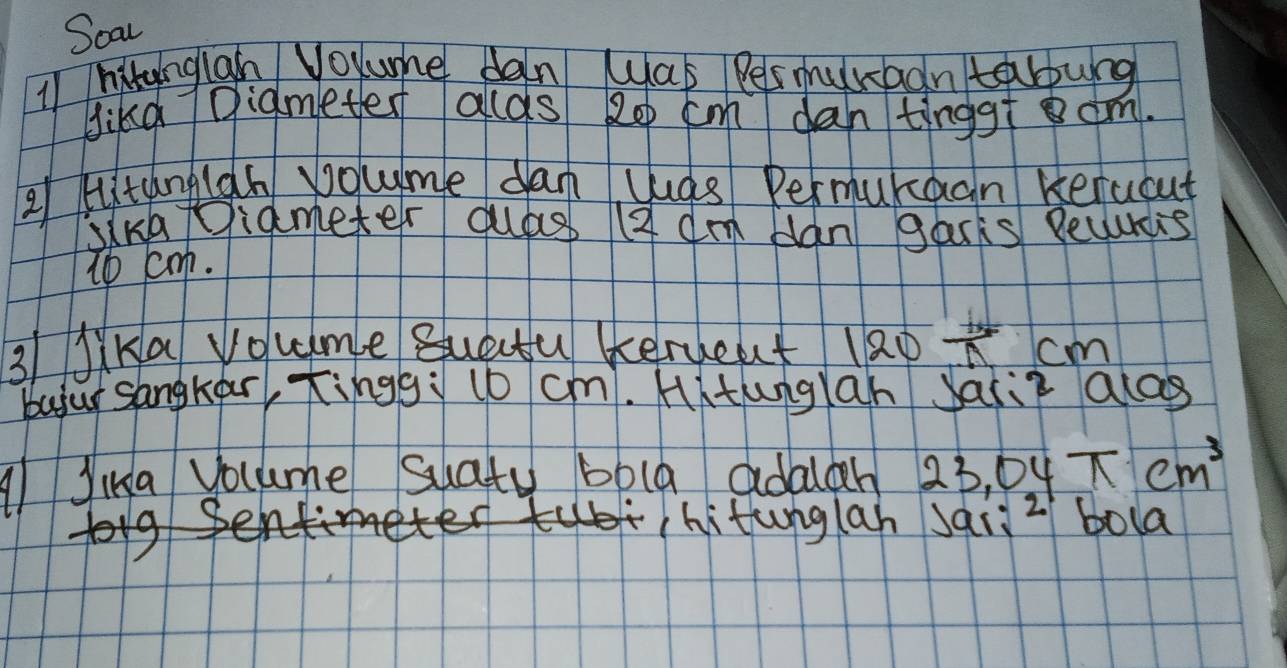 Soal
1) hitunglah Volume dan Luas Permukaan tabung
Jika Diameter alas 20 cm dan tinggi 8 cm.
2) Hitunglah Volume dan Luas Permukaan Kerucut
Jika Diameter alas 12 cm dan garis Pelukis
10 cm.
3) Jika Volume Suatu kerucut 120 π cm
bujur sangkar, Tinggi 10 cm. Hitunglah Jari2 alas
4) Jika Volume Suatu bola adalah 23,04 π cm³
Sentimeter tubi, hitunglah Jari² bola